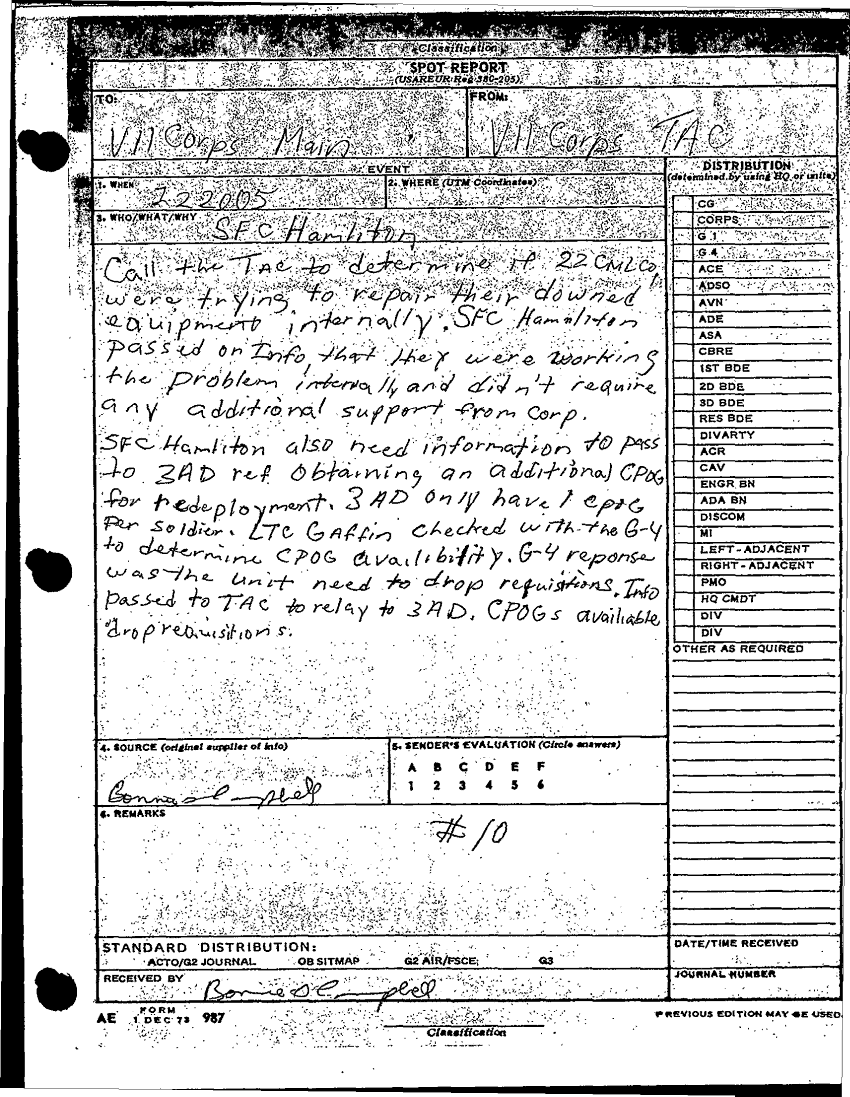 Classification
SPOT REPORT
(USAREUR Reg 380-205)
TO:
FROM:
VII Corps Main
VII Corps TAC
EVENT
DISTRIBUTION
(determined by using HQ or units)
1. WHEN
222005
2. WHERE (UTM Coordinates)
3. WHO/WHAT/WHY
SFC Hamliton
Call the TAC to determine if 22 CMLCo,
were trying to repair their downed
equipment internally. SFC Hamaliton
passed on Info, that they were working
the problem internally and didn't require
any additional support from Corp.
SFC Hamliton also need information to pass
to 3AD ref obtaining an additional CPOG
for redeployment. 3AD only have 1 CPOG
Per soldier. LTC Gaffin checked with the G-4
to determine CPOG availibility. G-4 reponse
was the unit need to drop requistions. Info
passed to TAC to relay to 3AD. CPOGs availiable
drop requisitions.
CG
CORPS
G 1
G 4
ACE
ADSO
AVN
ADE
ASA
CBRE
1ST BDE
2D BDE
3D BDE
RES BDE
DIVARTY
ACR
CAV
ENGR BN
ADA BN
DISCOM
MI
LEFT-ADJACENT
RIGHT-ADJACENT
PMO
HQ CMDT
DIV
DIV
OTHER AS REQUIRED
4. SOURCE (original supplier of info)
Bonnie S Campbell
5. SENDER'S EVALUATION (Circle answers)
A B C D E F
1 2 3 4 5 6
6. REMARKS
# 10
STANDARD DISTRIBUTION:
ACTO/G2 JOURNAL OB SITMAP G2 AIR/FSCE; G3
DATE/TIME RECEIVED
RECEIVED BY
Bonnie S Campbell
JOURNAL NUMBER
AE FORM 1 DEC 73 987
PREVIOUS EDITION MAY BE USED.
Classification